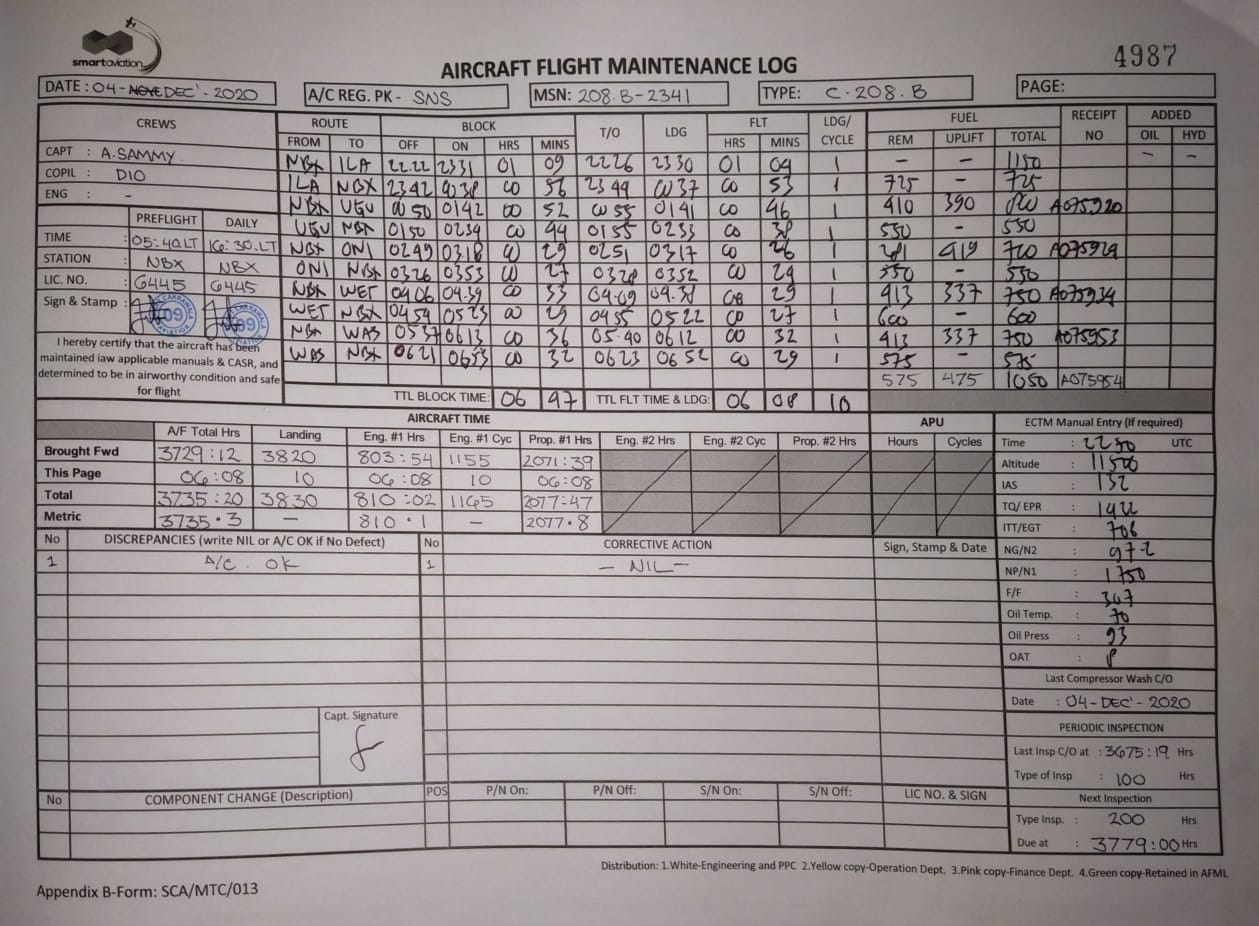 smartaviation
AIRCRAFT FLIGHT MAINTENANCE LOG
4987
DATE : 04 - NOVE DEC' - 2020
A/C REG. PK - SNS
MSN: 208.B-2341
TYPE: C-208.B
PAGE:
CREWS ROUTE BLOCK T/O LDG FLT LDG/ CYCLE FUEL RECEIPT NO ADDED
FROM TO OFF ON HRS MINS HRS MINS REM UPLIFT TOTAL OIL HYD
CAPT : A.SAMMY
COPIL : DIO
ENG : -
NBX ILA 22.22 2331 01 09 2226 2330 01 04 1 - - 1150 - -
ILA NBX 2342 0038 00 56 2344 0037 00 53 1 725 - 725
NBX UGU 00 50 0142 00 52 00 55 0141 00 46 1 410 390 A075920
UGU NBX 0150 0234 00 44 0155 0233 00 38 1 550 - 550
NBX ONI 0249 0318 00 29 0251 0317 00 26 1 419 700 A075924
ONI NBX 0326 0353 00 27 0328 0352 00 24 1 550 - 550
NBX WET 04 06 04.39 00 33 04.09 04.38 00 29 1 413 337 750 A075934
WET NBX 0454 0523 00 29 04 55 05 22 00 27 1 600 - 600
NBX WAB 0537 0613 00 36 05.40 06 12 00 32 1 413 337 750 A075953
WAB NBX 0621 0653 00 32 06 23 06 52 00 29 1 575 - 575
575 475 1050 A075954
PREFLIGHT DAILY
TIME : 05:40LT 16:30.LT
STATION : NBX NBX
LIC. NO. : 6445 6445
Sign & Stamp :
I hereby certify that the aircraft has been
maintained iaw applicable manuals & CASR, and
determined to be in airworthy condition and safe
for flight
TTL BLOCK TIME: 06 47 TTL FLT TIME & LDG: 06 08 10
AIRCRAFT TIME
A/F Total Hrs Landing Eng. #1 Hrs Eng. #1 Cyc Prop. #1 Hrs Eng. #2 Hrs Eng. #2 Cyc Prop. #2 Hrs
APU
Hours Cycles
Brought Fwd 3729:12 3820 803:54 1155 2071:39
This Page 06:08 10 06:08 10 06:08
Total 3735:20 3830 810:02 1165 2077:47
Metric 3735.3 - 810.1 - 2077.8
No DISCREPANCIES (write NIL or A/C OK if No Defect) No CORRECTIVE ACTION Sign, Stamp & Date
1 A/C . OK 1 - NIL -
Capt. Signature
No COMPONENT CHANGE (Description) POS P/N On: P/N Off: S/N On: S/N Off: LIC NO. & SIGN
ECTM Manual Entry (If required)
Time : 2250 UTC
Altitude : 11500
IAS : 132
TQ/ EPR : 1422
ITT/EGT : 706
NG/N2 : 97.2
NP/N1 : 1750
F/F : 347
Oil Temp. : 70
Oil Press : 93
OAT : 8
Last Compressor Wash C/O
Date : 04-DEC'-2020
PERIODIC INSPECTION
Last Insp C/O at : 3675:19 Hrs
Type of Insp : 100 Hrs
Next Inspection
Type Insp. : 200 Hrs
Due at : 3779:00 Hrs
Distribution: 1.White-Engineering and PPC 2.Yellow copy-Operation Dept. 3.Pink copy-Finance Dept. 4.Green copy-Retained in AFML
Appendix B-Form: SCA/MTC/013